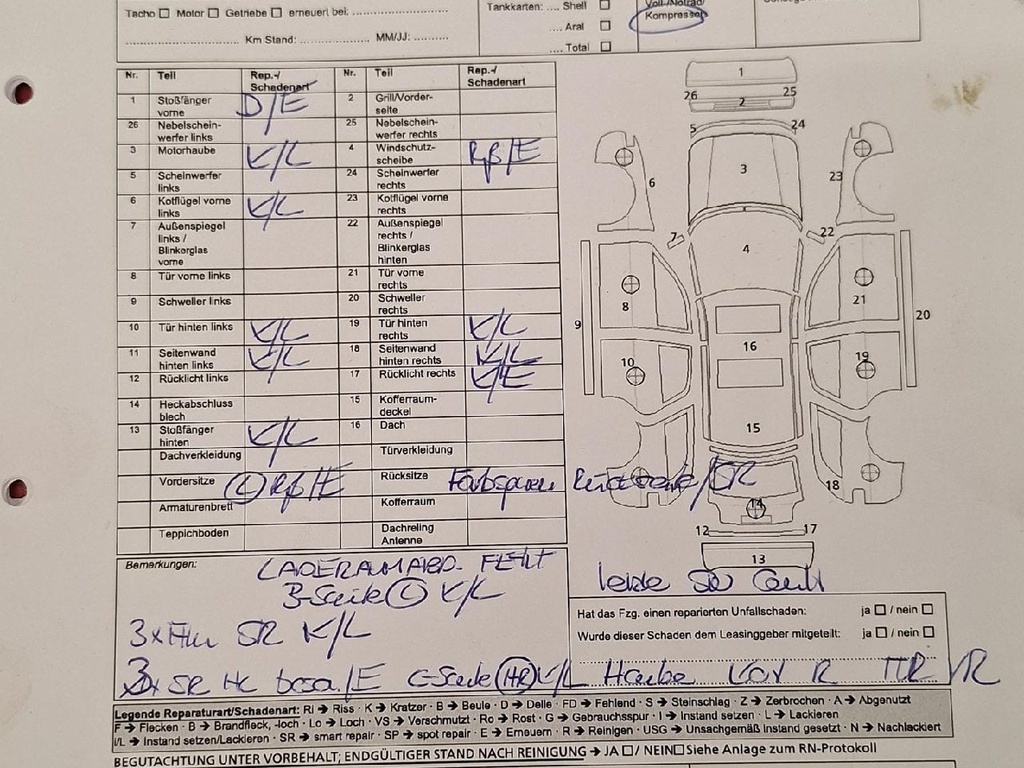 Tacho ☐ Motor ☐ Getriebe ☐ erneuert bei: ....................
Km Stand: .................... MM/JJ: ..........
Tankkarten: .... Shell ☐
.... Aral ☐
.... Total ☐
Voll-/Notrad/
Kompressor
Nr. Teil Rep.-/ Schadenart Nr. Teil Rep.-/ Schadenart
1 Stoßfänger vorne D/E 2 Grill/Vorder-seite
26 Nebelschein-werfer links 25 Nebelschein-werfer rechts
3 Motorhaube K/L 4 Windschutz-scheibe /E
5 Scheinwerfer links 24 Scheinwerfer rechts
6 Kotflügel vorne links K/L 23 Kotflügel vorne rechts
7 Außenspiegel links / Blinkerglas vorne 22 Außenspiegel rechts / Blinkerglas hinten
8 Tür vorne links 21 Tür vorne rechts
9 Schweller links 20 Schweller rechts
10 Tür hinten links K/L 19 Tür hinten rechts K/L
11 Seitenwand hinten links K/L 18 Seitenwand hinten rechts K/L
12 Rücklicht links 17 Rücklicht rechts K/E
14 Heckabschluss blech 15 Kofferraum-deckel
13 Stoßfänger hinten K/L 16 Dach
Dachverkleidung Türverkleidung
Vordersitze L /E Rücksitze /SR
Armaturenbrett Kofferraum
Teppichboden Dachreling Antenne
1
26 2 25
5 24
3
6 23
7 22
4
8 21
9 20
16
10 19
15
18
14
12 17
13
Bemerkungen: LADERAUMABD. FEHLT
B-Säule L K/L
3x SR K/L
3x SR /E C-Säule HR K/L Haube R
Hat das Fzg. einen reparierten Unfallschaden: ja ☐ / nein ☐
Wurde dieser Schaden dem Leasinggeber mitgeteilt: ja ☐ / nein ☐
Legende Reparaturart/Schadenart: RI → Riss · K → Kratzer · B → Beule · D → Delle · FD → Fehlend · S → Steinschlag · Z → Zerbrochen · A → Abgenutzt
F → Flecken · B → Brandfleck, -loch · Lo → Loch · VS → Verschmutzt · Ro → Rost · G → Gebrauchsspur · I → Instand setzen · L → Lackieren
I/L → Instand setzen/Lackieren · SR → smart repair · SP → spot repair · E → Erneuern · R → Reinigen · USG → Unsachgemäß instand gesetzt · N → Nachlackiert
BEGUTACHTUNG UNTER VORBEHALT; ENDGÜLTIGER STAND NACH REINIGUNG → JA ☐ / NEIN ☐ Siehe Anlage zum RN-Protokoll